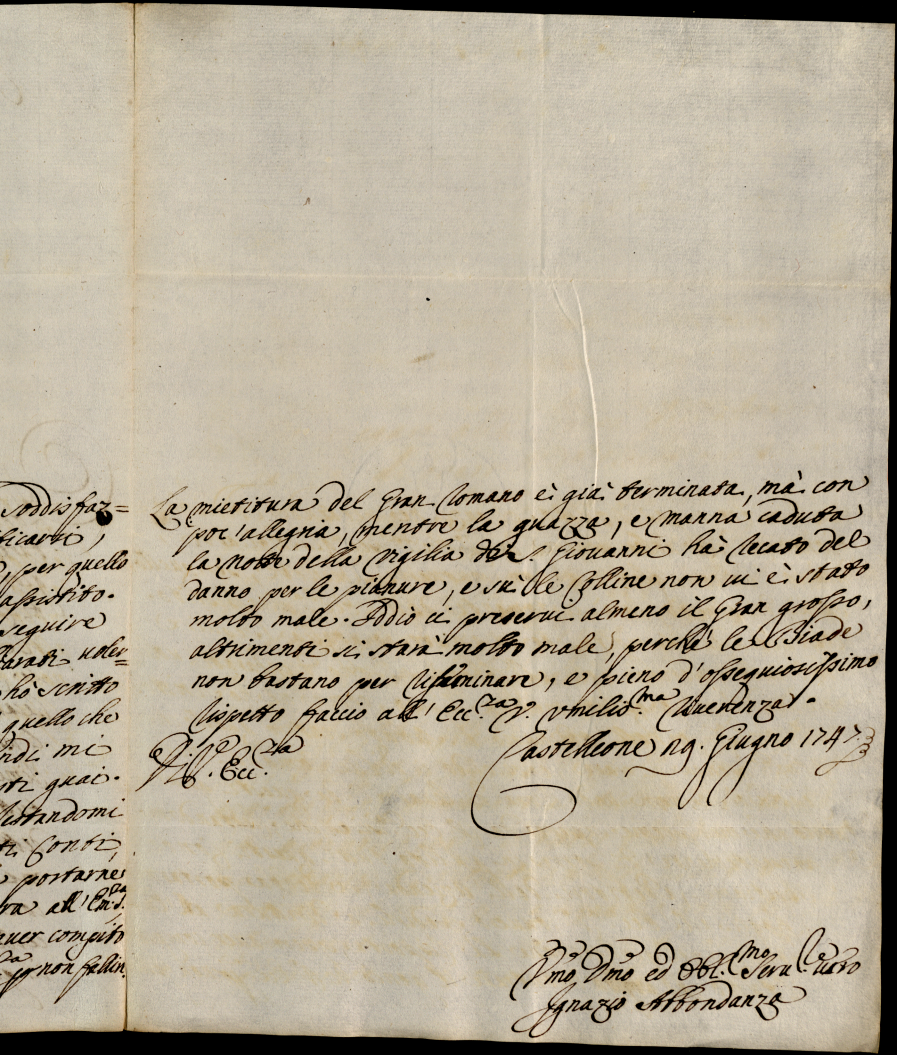 soddisfaz=
ticarvi,
, per quello
assistito.
seguire
arati voler=
hò scritto
quello che
indi mi
sti guai.
restandomi
ti Conti,
portarne
ra all' Em.za S.
aver compito
non fallir.
La mietitura del Gran Romano è già terminata, mà con
poc'allegria, mentre la guazza, e manna caduta
la notte della vigilia di S. Giovanni hà recato del
danno per le pianure, e sù le Colline non vi è stato
molto male. Iddio ci preservi almeno il Gran grosso,
altrimenti si starà molto male, perche le Biade
non bastano per riseminare, e pieno d'ossequiosissimo
rispetto faccio all' Ecc.za V. umilis.ma riverenza.
Di V. Ecc.za
Castelleone 29. Giugno 1747
Vmo Dmo ed Obl.mo Serv.re vero
Ignazio Abbondanza